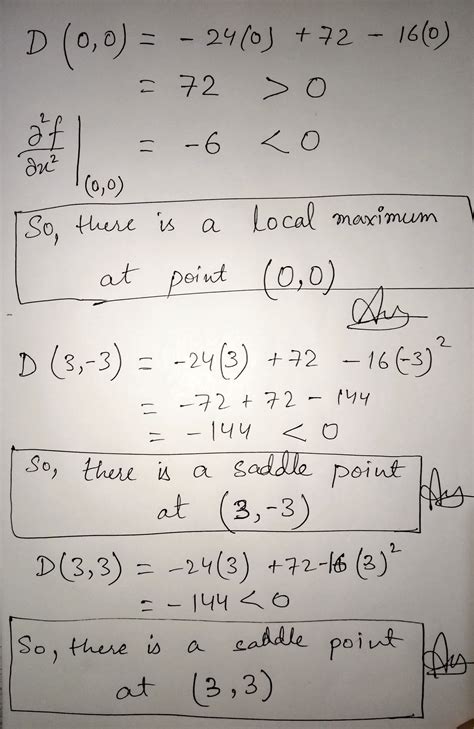 D (0,0) = - 24(0) + 72 - 16(0)
= 72 > 0
∂²f/∂x² |(0,0) = -6 < 0
So, there is a local maximum
at point (0,0)
Ans
D (3,-3) = -24(3) + 72 - 16(-3)²
= -72 + 72 - 144
= -144 < 0
So, there is a saddle point
at (3,-3)
Ans
D(3,3) = -24(3) + 72 - 16 (3)²
= -144 < 0
So, there is a saddle point
at (3,3)
Ans